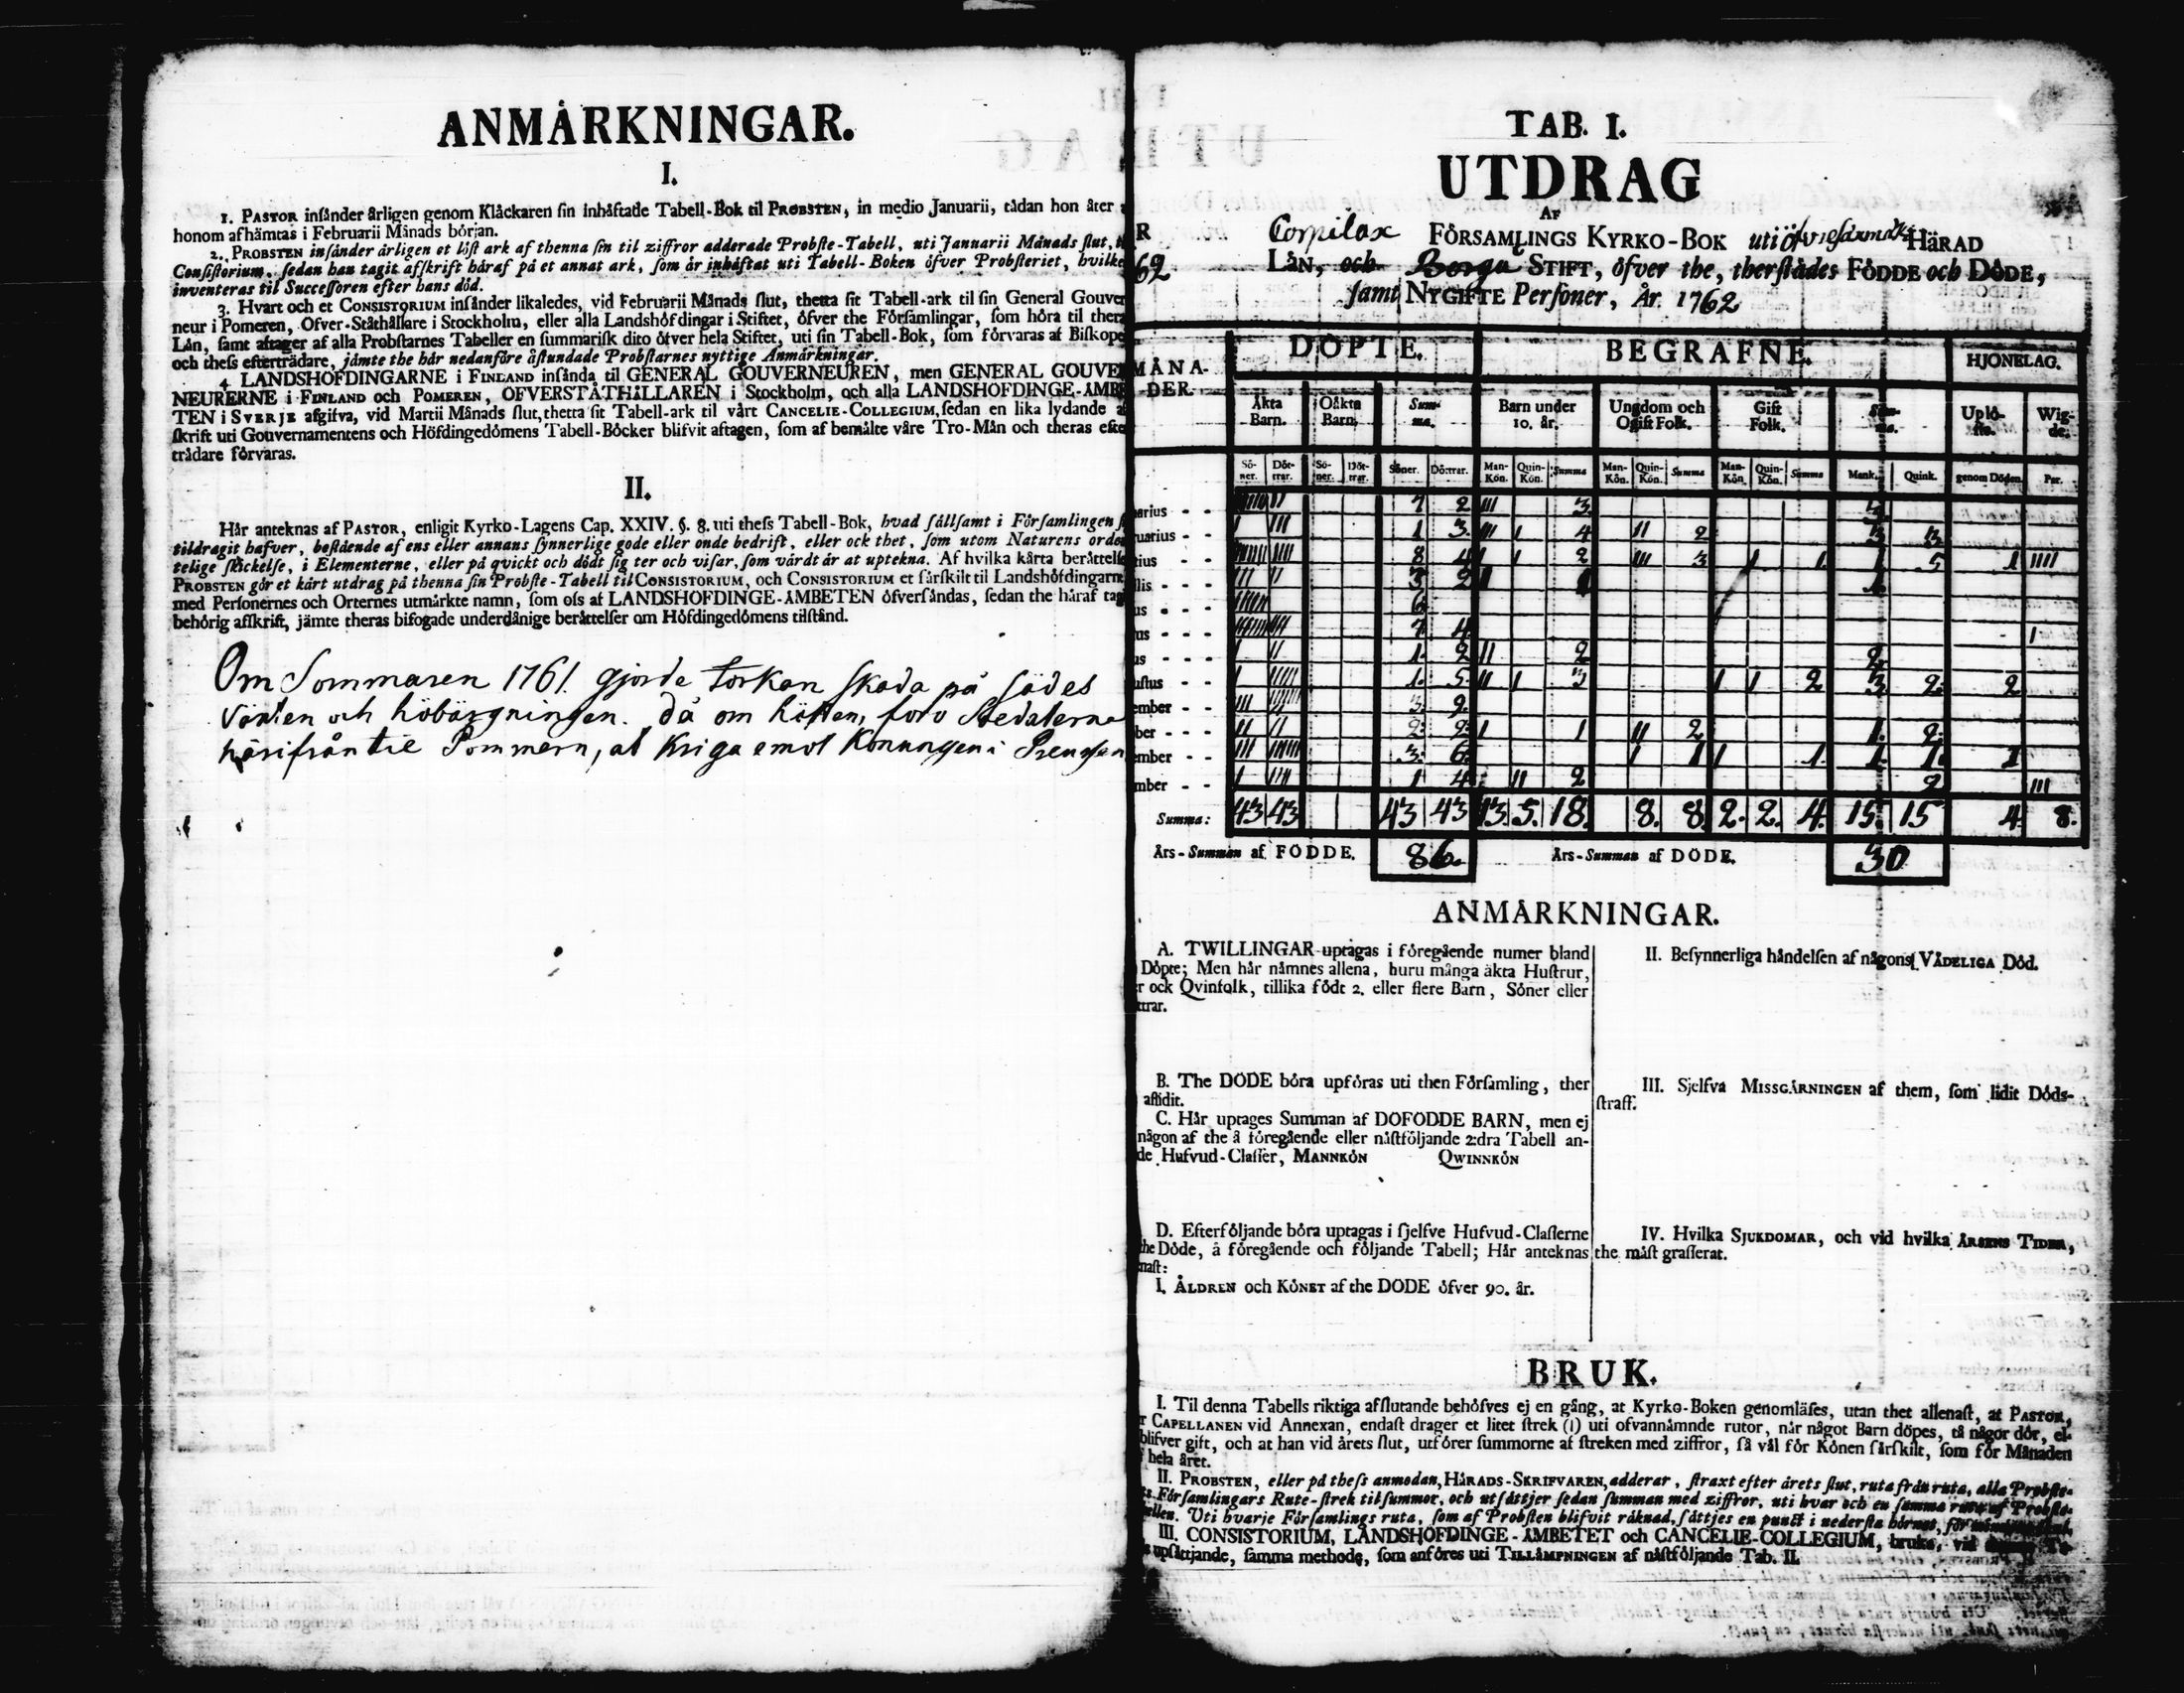 ANMÅRKNINGAR.
I.
1. PASTOR insånder årligen genom Klåckaren sin inhåftade Tabell-Bok til PROBSTEN, in medio Januarii, tådan hon åter
honom afhämtas i Februarii Månads början.
2. PROBSTEN insånder årligen et löst ark af thenna sin til ziffror adderade Probste-Tabell, uti Januarii Månads slut,
Consistorium, sedan han tagit afskrift håraf på et annat ark, som år inhåftat uti Tabell-Boken öfver Probsteriet, hvilke
inventeras til Successoren efter hans död.
3. Hvart och et CONSISTORIUM insånder likaledes, vid Februarii Månads slut, thetta sit Tabell-ark til sin General Gouver
neur i Pomeren, Öfver-Ståthållare i Stockholm, eller alla Landshöfdingar i Stiftet, öfver the Församlingar, som höra til thera
Lån, samt aftager af alla Probstarnes Tabeller en summarisk dito öfver hela Stiftet, uti sin Tabell-Bok, som förvaras af Biskope
och thess efterträdare, jämte the hår nedanföre åstundade Probstarnes nyttige Anmärkningar.
4 LANDSHÖFDINGARNE i FINLAND insånda til GENERAL GOUVERNEUREN, men GENERAL GOUVE
NEURERNE i FINLAND och POMEREN, ÖFVERSTÅTHÅLLAREN i Stockholm, och alla LANDSHÖFDINGE-ÅMBE
TEN i SVERJE afgifva, vid Martii Månads slut, thetta sit Tabell-ark til vårt CANCELIE-COLLEGIUM, sedan en lika lydande a
skrift uti Gouvernamentens och Höfdingedömens Tabell-Böcker blifvit aftagen, som af bemålte våre Tro-Mån och theras efte
trådare förvaras.
II.
Hår anteknas af PASTOR, enligit Kyrko-Lagens Cap. XXIV. §. 8. uti thess Tabell-Bok, hvad sållsamt i Församlingen
tildragit hafver, bestående af ens eller annans synnerlige gode eller onde bedrift, eller ock thet, som utom Naturens orde
telige skickelse, i Elementerne, eller på qvickt och dödt sig ter och visar, som vårdt år at uptekna. Af hvilka kårta beråttelse
PROBSTEN gör et kårt utdrag på thenna sin Probste-Tabell til CONSISTORIUM, och CONSISTORIUM et sårskilt til Landshöfdingarne
med Personernes och Orternes utmårkte namn, som oss af LANDSHÖFDINGE-ÅMBETEN öfversåndas, sedan the håraf tag
behörig afskrift, jämte theras bifogade underdånige beråttelser om Höfdingedömens tilstånd.
Om Sommaren 1761. gjorde torkan skada på sädes
växten och höbärgningen. då om hösten, foro Soldaterna
härifrån til Pommern, at kriga emot Konungen i Preussen
TAB. I.
UTDRAG
AF
R Corpilax FÖRSAMLINGS KYRKO-BOK uti HÄRAD
62 LÅN, och Borgå STIFT, öfver the, therstådes FÖDDE och DÖDE,
samt NYGIFTE Personer, År. 1762
MÅNA-
DER
DÖPTE. BEGRAFNE. HJONELAG.
Åkta Barn. Oåkta Barn. Summa. Barn under 10. år. Ungdom och Ogift Folk. Gift Folk. Summa. Uplöste. Wigde.
Söner. Döttrar. Söner. Döttrar. Söner. Döttrar. Man-Kön. Quin-Kön. Summa Man-Kön. Quin-Kön. Summa Man-Kön. Quin-Kön. Summa Mank. Quink. genom Döden. Par.
arius - - 7 2 III 3 3
ruarius - - I III 1 3. III I 4 II 2 3 3
tius - - 8 4 I I 2 III 3 I 1. 1 5 1 IIII
lis - - III II 3 2 1 1.
us - - - 6.
us - - - 7 4 I
us - - - I II 1. 2 II 2 2.
ustus - - I IIIII 1. 5. II I 3 I I 2 3 2. 2
ember - - III 3. 9.
ber - - - II II 2. 2. I 1 II 2 1. 2.
ember - - III IIIIII 3. 6. I 1 I 1. 1. 1. 1
mber - - I IIII 1 4. II 2 2 III
Summa: 43 43 43 43 13. 5. 18. 8. 8. 2. 2. 4. 15. 15 4. 8.
Års-Summan af FÖDDE. 86. Års-Summan af DÖDE. 30
ANMÅRKNINGAR.
A. TWILLINGAR uptagas i föregående numer bland
Döpte; Men hår nåmnes allena, huru många äkta Hustrur,
r ock Qvinfolk, tillika födt 2. eller flere Barn, Söner eller
ttrar.
B. The DÖDE böra upföras uti then Församling, ther
aflidit.
C. Hår uptages Summan af DÖFÖDDE BARN, men ej
någon af the å föregående eller nåstföljande 2:dra Tabell an-
de Hufvud-Classer, MANNKÖN QWINNKÖN
D. Efterföljande böra uptagas i sjelfve Hufvud-Classerne
the Döde, å föregående och följande Tabell; Hår anteknas
nast:
I. ÅLDREN och KÖNET af the DÖDE öfver 90. år.
II. Besynnerliga håndelsen af någons VÅDELIGA Död.
III. Sjelfva MISSGÅRNINGEN af them, som lidit Döds-
straff.
IV. Hvilka SJUKDOMAR, och vid hvilka ÅRSENS TIDER,
the måst grasserat.
BRUK.
I. Til denna Tabells riktiga afslutande behöfves ej en gång, at Kyrko-Boken genomläses, utan thet allenast, at PASTOR,
r CAPELLANEN vid Annexan, endast drager et litet strek (I) uti ofvannämnde rutor, når något Barn döpes, tå någor dör, el-
blifver gift, och at han vid årets slut, utförer summorne af streken med ziffror, så vål för Könen sårskilt, som för Månaden
hela året.
II. PROBSTEN, eller på thess anmodan, HÄRADS-SKRIFVAREN, adderar, straxt efter årets slut, ruta från ruta, alla Probste-
ts Församlingars Rute-strek tilsummor, och utsåttjer sedan summan med ziffror, uti hvar och en samma ruta af Probste-
ellen. Uti hvarje Församlings ruta, som af Probsten blifvit råknad, såttjes en punkt i nedersta hörnet,
III. CONSISTORIUM, LANDSHÖFDINGE-ÅMBETET och CANCELIE-COLLEGIUM, bruke, vid
upsåttjande, samma methode, som anföres uti TILLÅMPNINGEN af nåstföljande Tab. II.